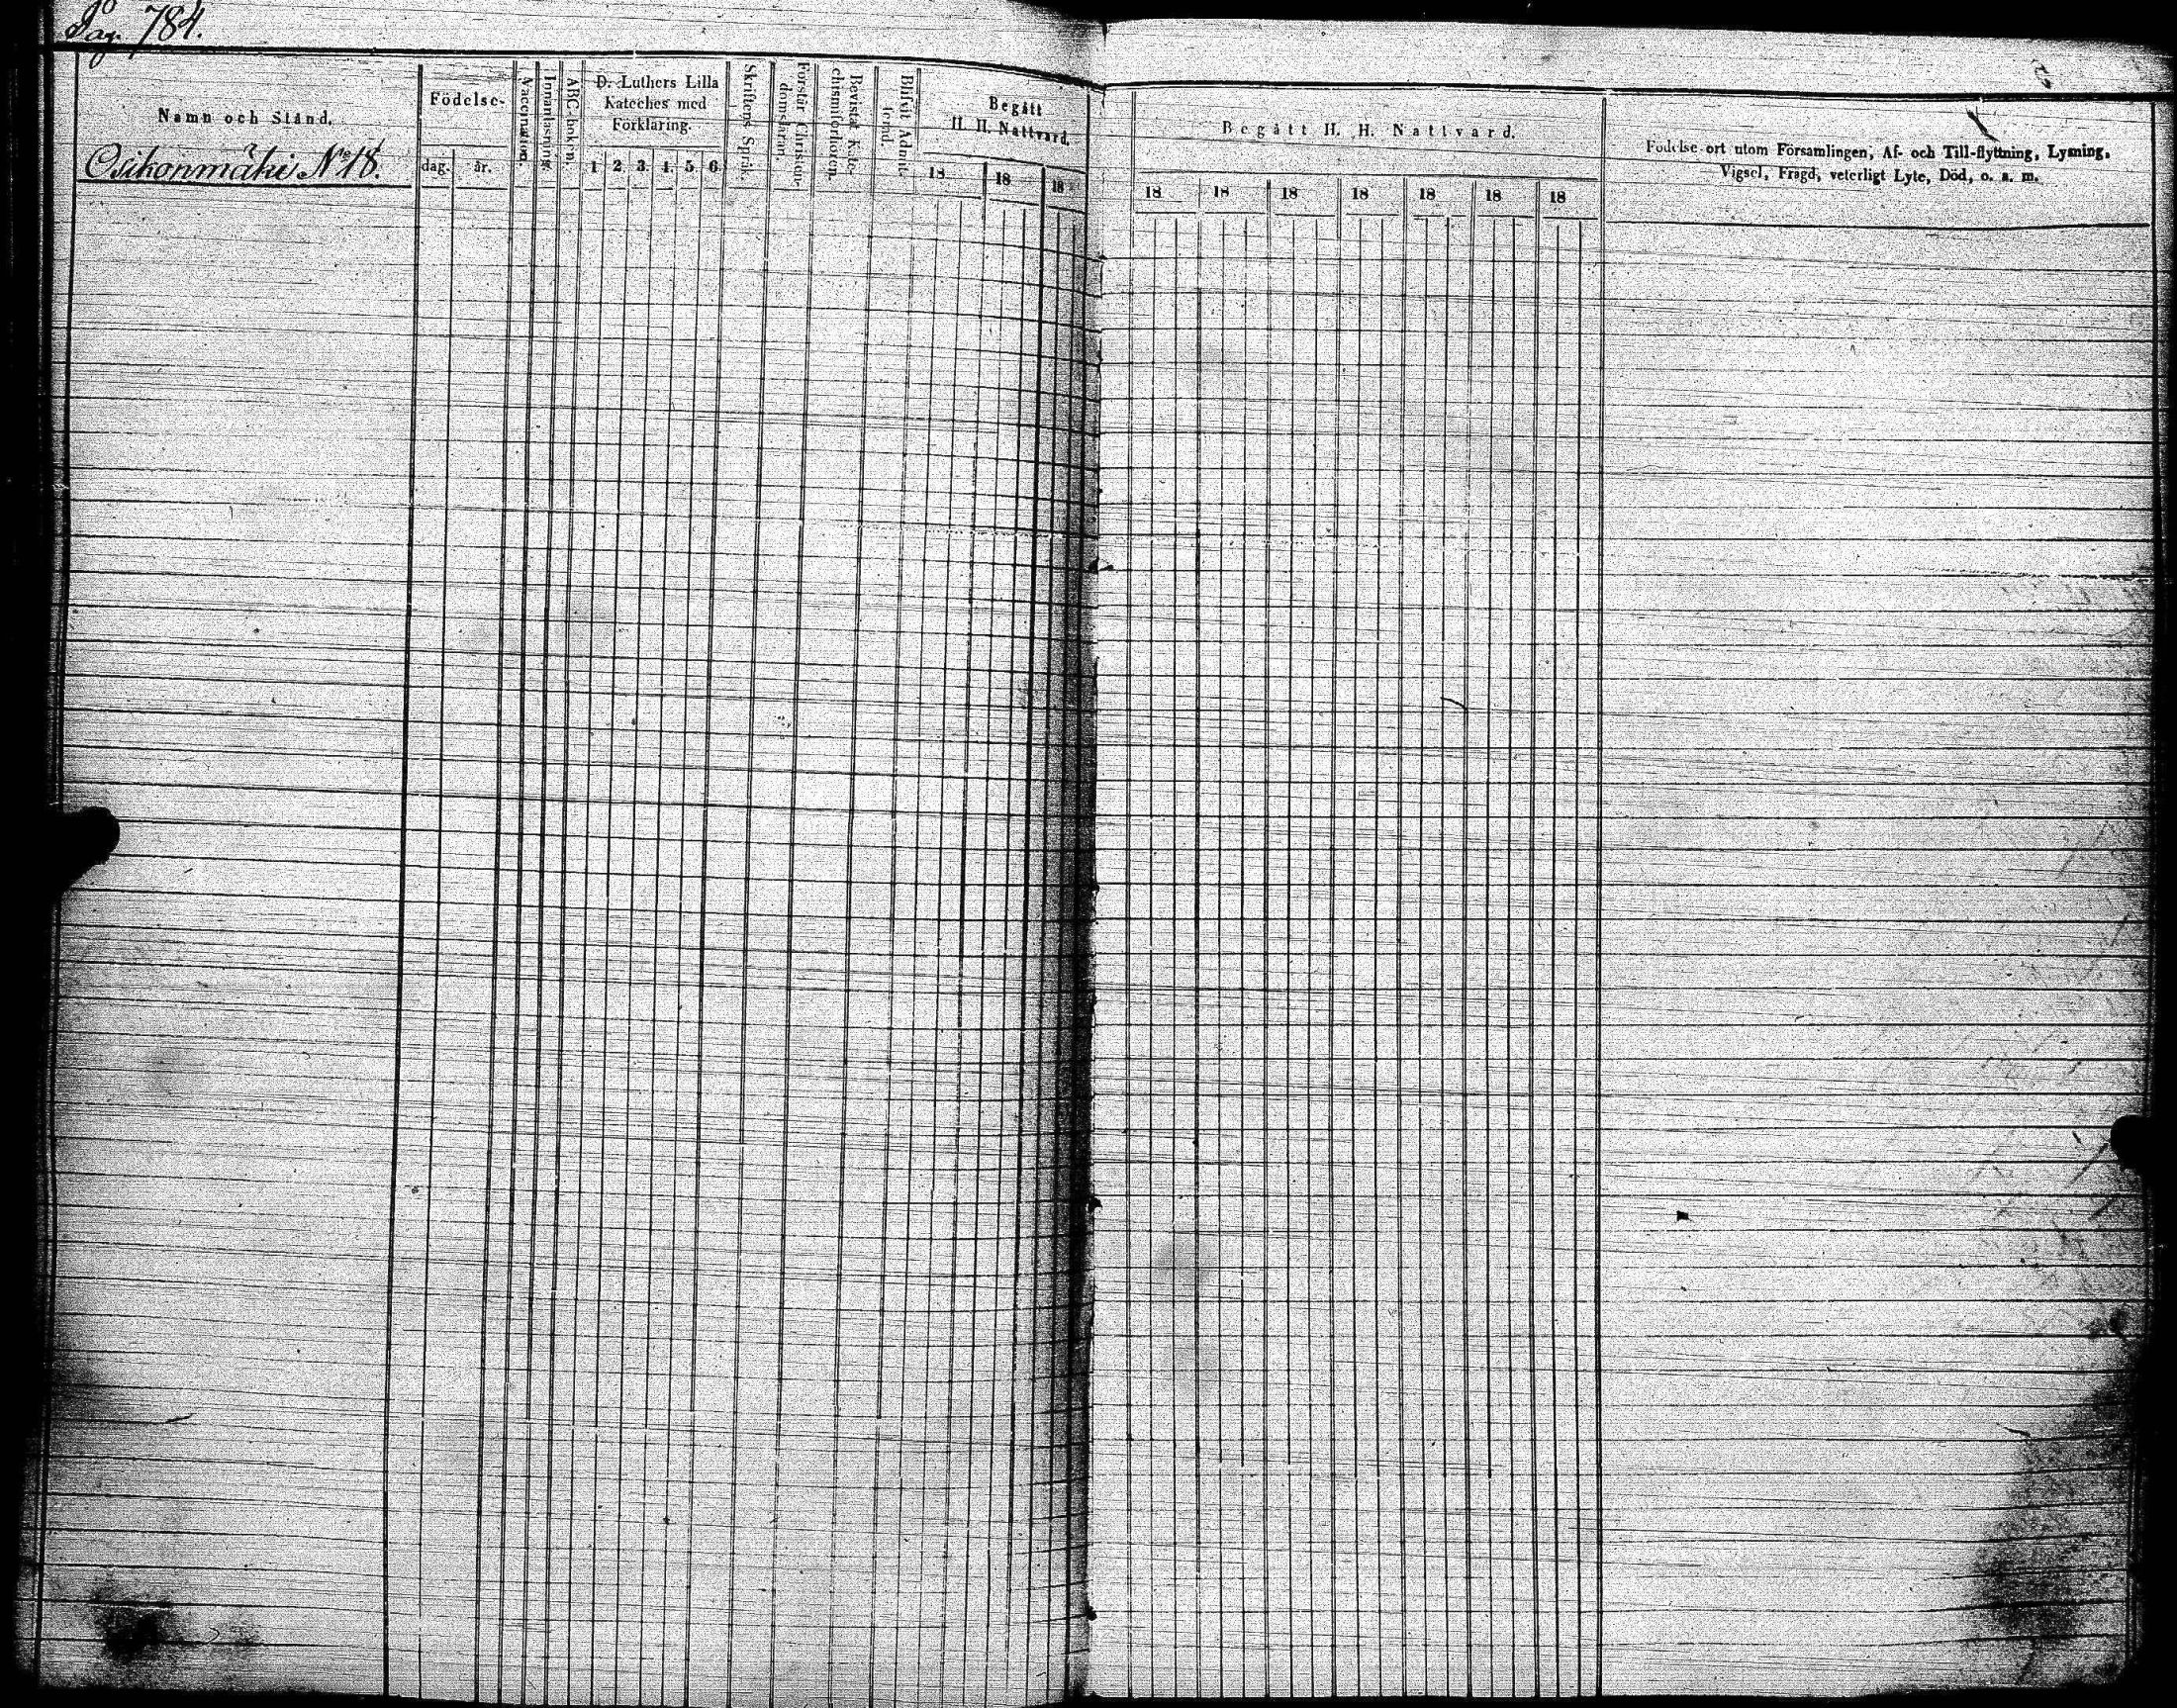 Pag. 784.
Namn och Stånd.
Osikonmäki No 18.
Födelse-
dag. år.
Vaccination.
Innanläsning.
ABC-boken.
D. Luthers Lilla
Kateches med
Förklaring.
1 2 3 4 5 6
Skriftens Språk.
Förstår Christen-
domsläran.
Bevistat Kate-
chismiförhören.
Blifvit Admit-
terad.
Begått
H. H. Nattvard.
18 18 18
Begått H. H. Nattvard.
18 18 18 18 18 18 18
Födelse-ort utom Församlingen, Af- och Till-flyttning, Lysning,
Vigsel, Frägd, veterligt Lyte, Död, o. s. m.